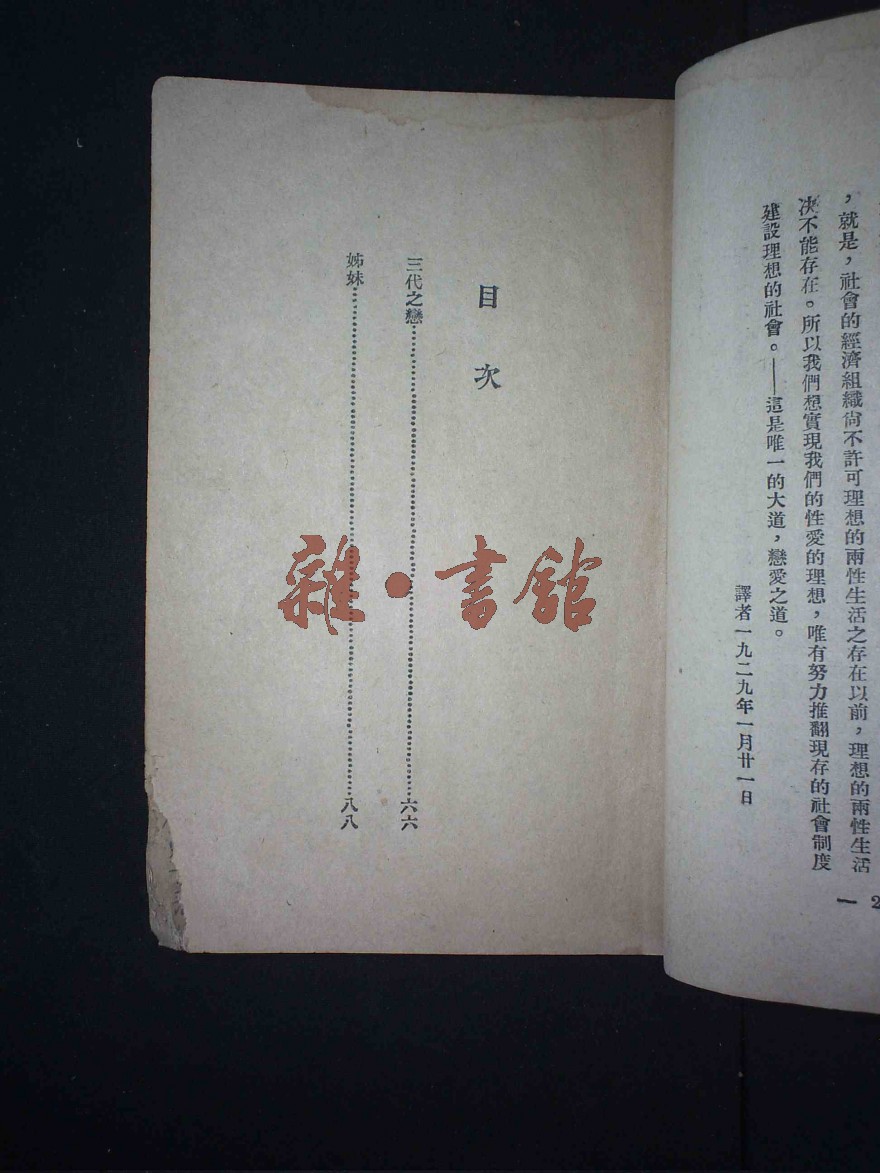 ，就是，社會的經濟組織尙不許可理想的兩性生活之存在以前，理想的兩性生活
決不能存在。所以我們想實現我們的性愛的理想，唯有努力推翻現存的社會制度
建設理想的社會。——這是唯一的大道，戀愛之道。
譯者一九二九年一月廿一日
— 2
目次
三代之戀……六六
姊妹……八八
雜·書館